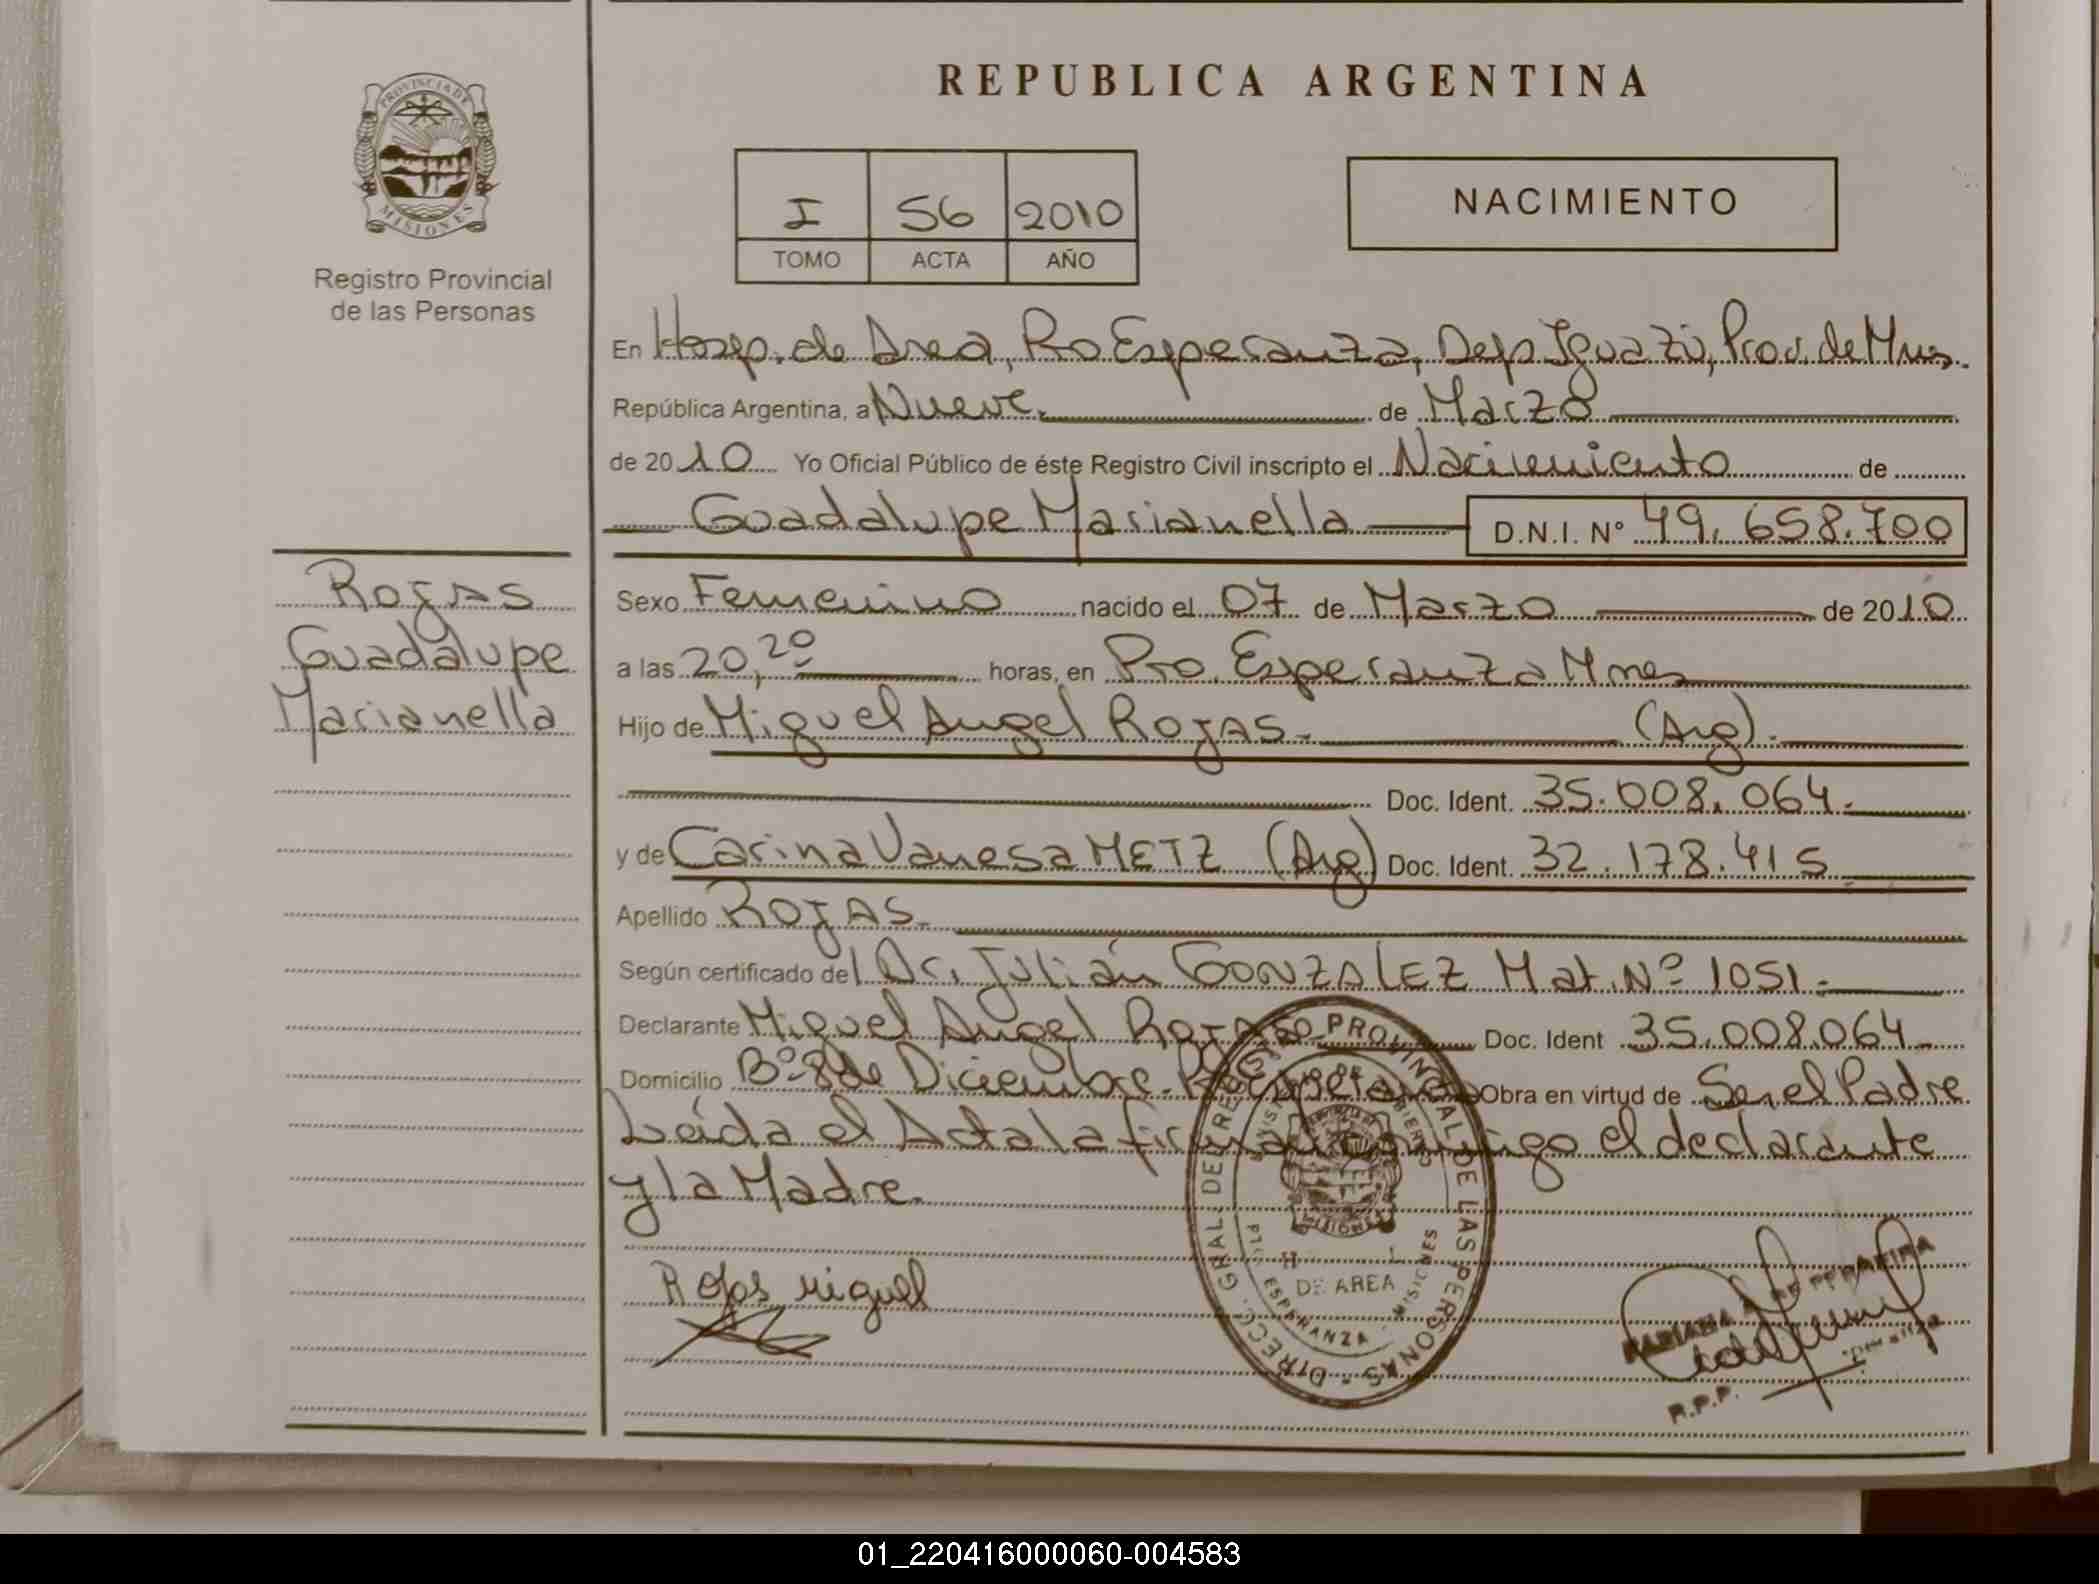 PROVINCIA DE
MISIONES
Registro Provincial
de las Personas
REPUBLICA ARGENTINA
I 56 2010
TOMO ACTA AÑO
NACIMIENTO
En Hosp. de Area, Pto Esperanza, Dep Iguazú, Prov. de Mnes.
República Argentina, a Nueve. de Marzo
de 2010 Yo Oficial Público de éste Registro Civil inscripto el Nacimiento de
Guadalupe Marianella D.N.I. Nº 49.658.700
Rojas
Guadalupe
Marianella
Sexo Femenino nacido el 07 de Marzo de 2010
a las 20,20 horas, en Pto. Esperanza Mnes
Hijo de Miguel Angel ROJAS.- (Arg).
Doc. Ident. 35.008.064.-
y de Carina Vanesa METZ (Arg) Doc. Ident. 32.178.415
Apellido ROJAS.
Según certificado del Dr. Julián GONZALEZ Mat. Nº 1051.-
Declarante Miguel Angel Rojas Doc. Ident 35.008.064-
Domicilio Bº 8 de Diciembre- Pto Esperanza Obra en virtud de Ser el Padre
Leída el Acta la firman conmigo el declarante
y la Madre.
Rojas Miguel
DIRECC. GRAL. DE REGISTRO PROVINCIAL DE LAS PERSONAS
DE AREA
ESPERANZA - MISIONES
MISIONES
R.P.P.
01_220416000060-004583